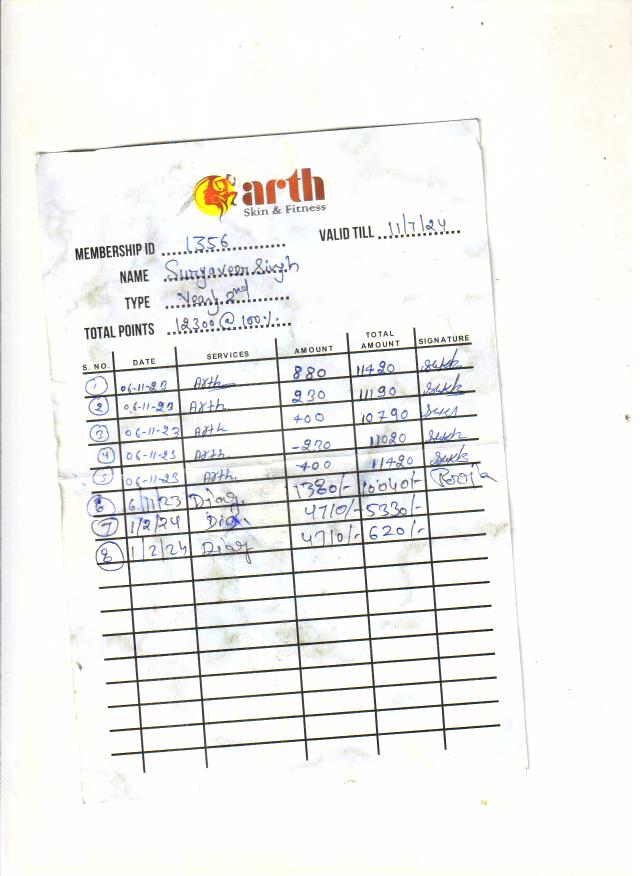 arth
Skin & Fitness
MEMBERSHIP ID 1356 VALID TILL 11/7/24
NAME Suryaveer Singh
TYPE Yearly 2nd
TOTAL POINTS 12300 @ 100%
S. NO. DATE SERVICES AMOUNT TOTAL AMOUNT SIGNATURE
1 06-11-23 Arth 880 11420
2 06-11-23 Arth 230 11190
3 06-11-23 Arth 400 10790
4 06-11-23 Arth. -230 11020
5 06-11-23 Arth. -400 11420
6 6/11/23 Diag. 1380/- 10040/- Pooja
7 1/2/24 Diag. 4710/- 5330/-
8 1/2/24 Diag 4710/- 620/-